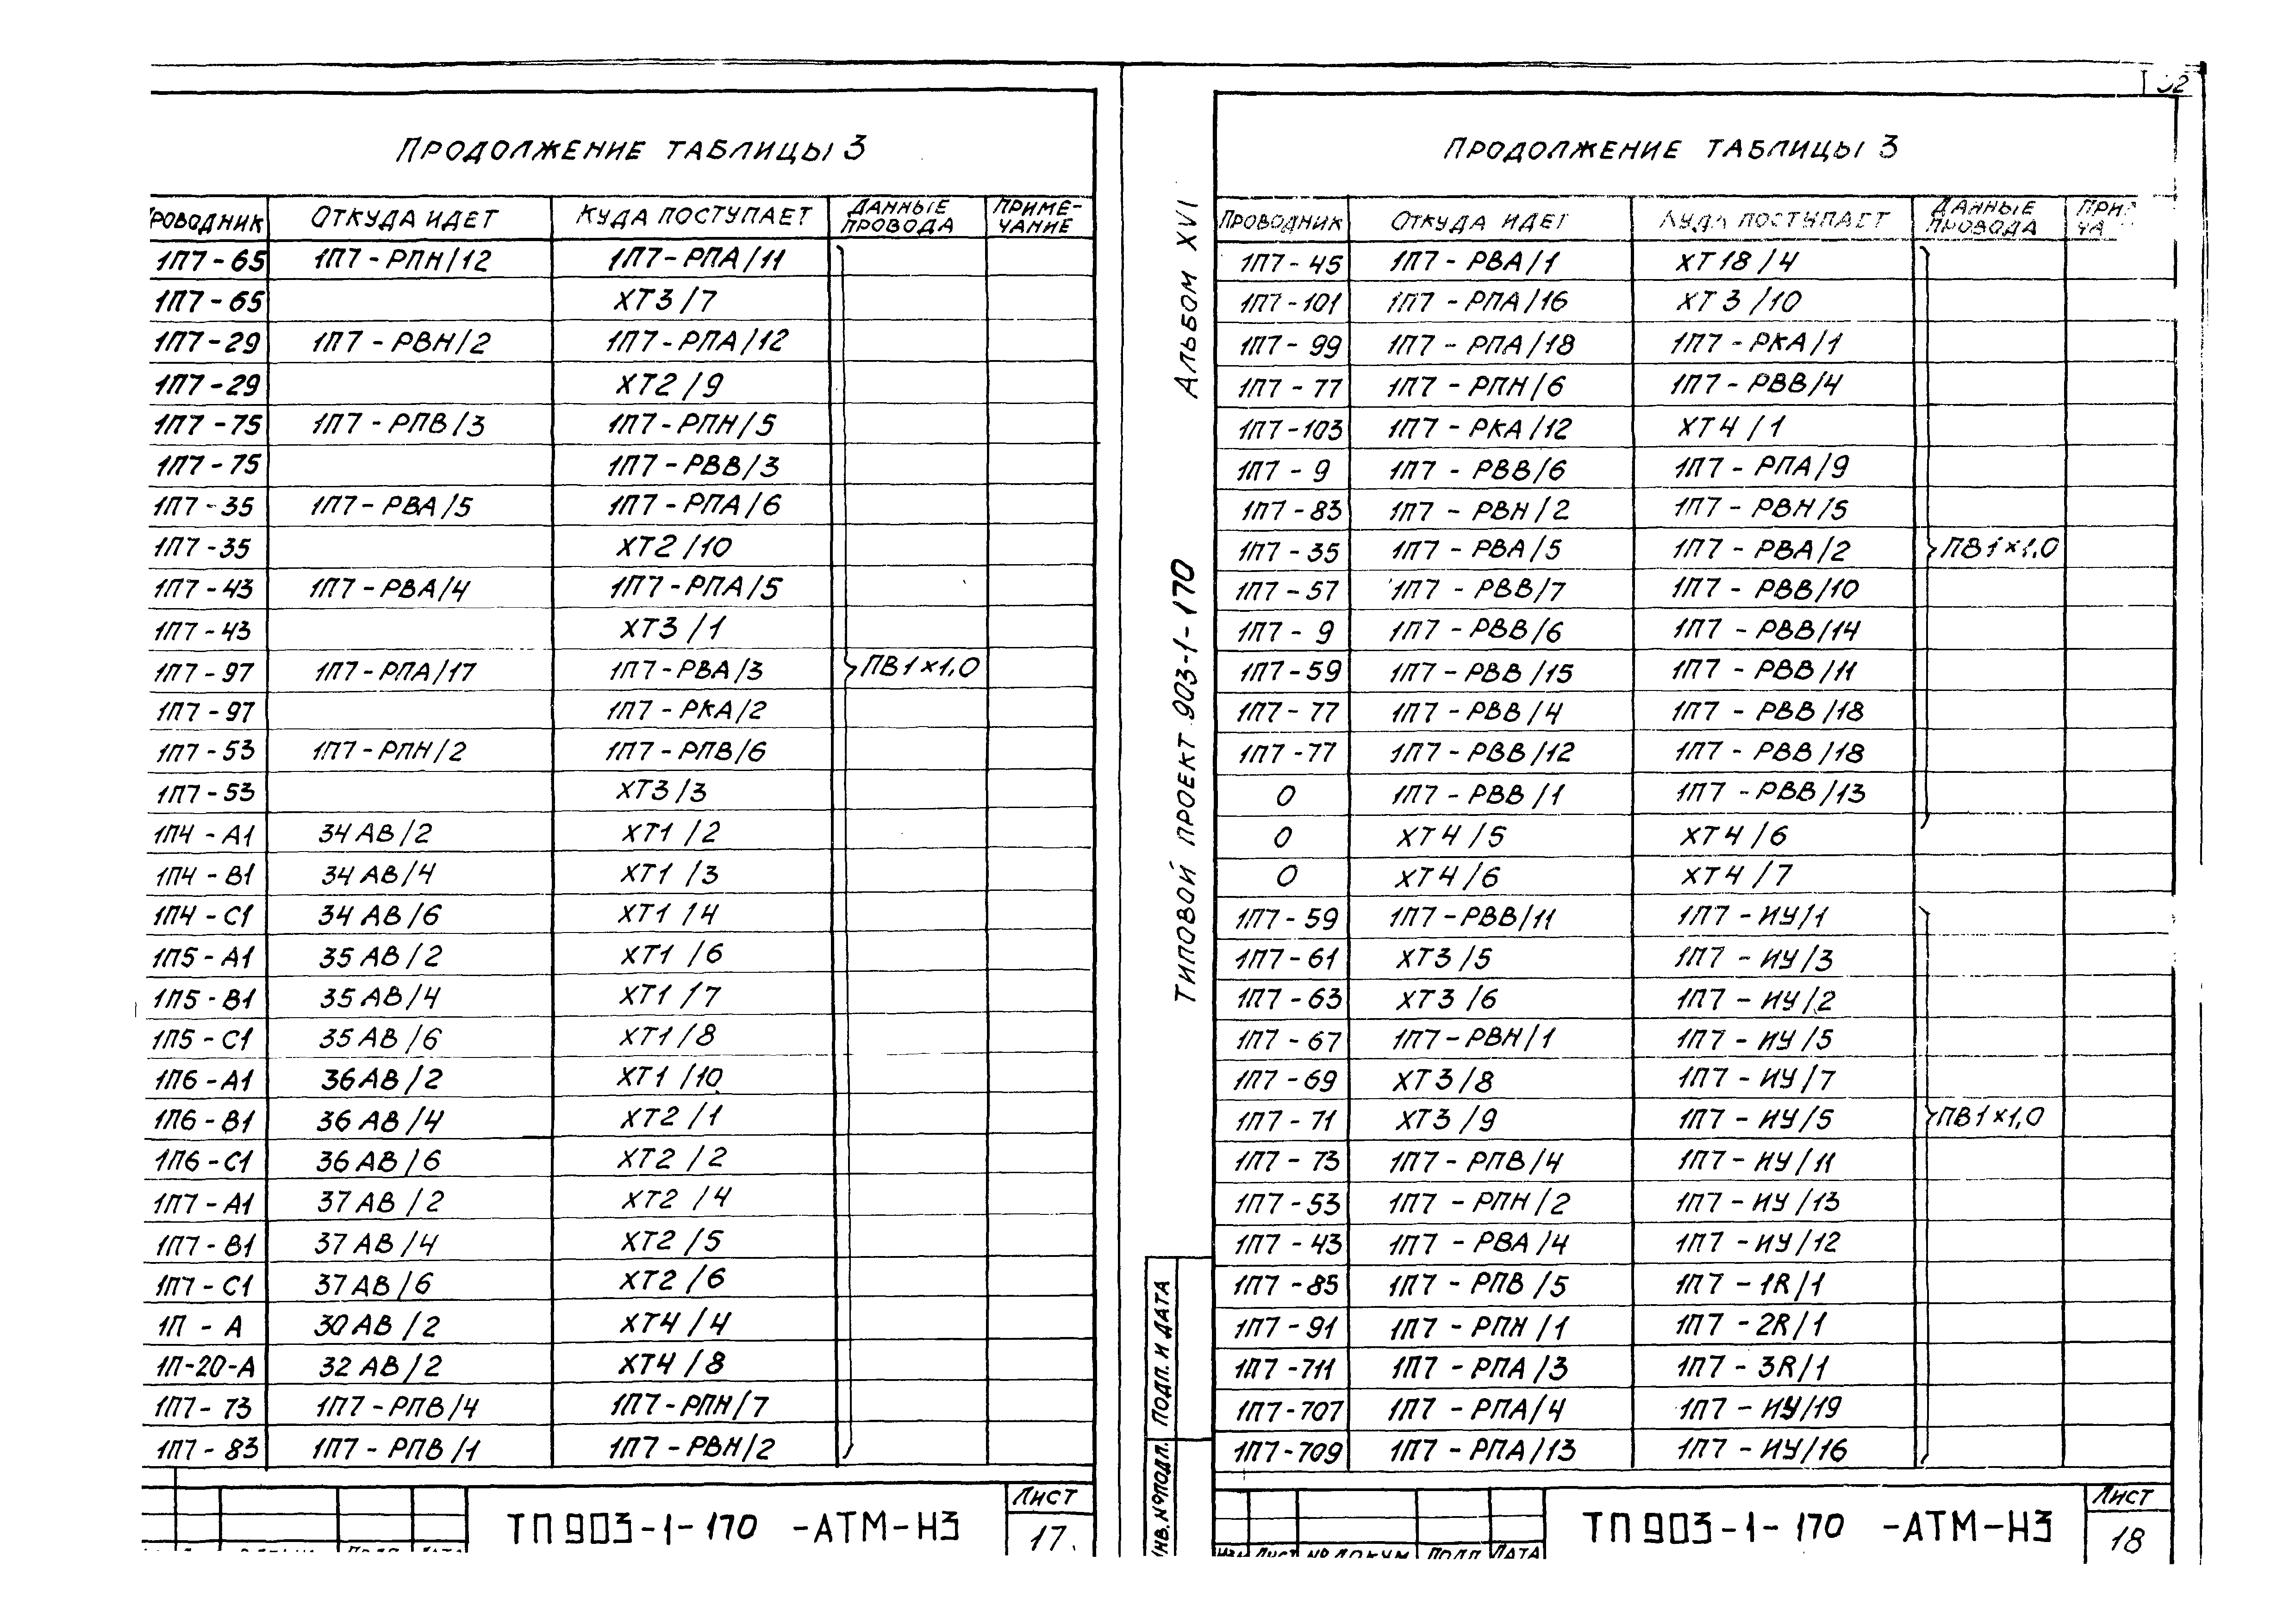 ПРОДОЛЖЕНИЕ ТАБЛИЦЫ 3
РОВОДНИК ОТКУДА ИДЕТ КУДА ПОСТУПАЕТ ДАННЫЕ ПРОВОДА ПРИМЕ-ЧАНИЕ
1П7-65 1П7-РПН/12 1П7-РПА/11
1П7-65 ХТ3/7
1П7-29 1П7-РВН/2 1П7-РПА/12
1П7-29 ХТ2/9
1П7-75 1П7-РПВ/3 1П7-РПН/5
1П7-75 1П7-РВВ/3
1П7-35 1П7-РВА/5 1П7-РПА/6
1П7-35 ХТ2/10
1П7-43 1П7-РВА/4 1П7-РПА/5
1П7-43 ХТ3/1
1П7-97 1П7-РПА/17 1П7-РВА/3 ПВ1×1,0
1П7-97 1П7-РКА/2
1П7-53 1П7-РПН/2 1П7-РПВ/6
1П7-53 ХТ3/3
1П4-А1 34АВ/2 ХТ1/2
1П4-В1 34АВ/4 ХТ1/3
1П4-С1 34АВ/6 ХТ1/4
1П5-А1 35АВ/2 ХТ1/6
1П5-В1 35АВ/4 ХТ1/7
1П5-С1 35АВ/6 ХТ1/8
1П6-А1 36АВ/2 ХТ1/10
1П6-В1 36АВ/4 ХТ2/1
1П6-С1 36АВ/6 ХТ2/2
1П7-А1 37АВ/2 ХТ2/4
1П7-В1 37АВ/4 ХТ2/5
1П7-С1 37АВ/6 ХТ2/6
1П-А 30АВ/2 ХТ4/4
1П-20-А 32АВ/2 ХТ4/8
1П7-73 1П7-РПВ/4 1П7-РПН/7
1П7-83 1П7-РПВ/1 1П7-РВН/2
ТП 903-1-170 -АТМ-НЗ
ЛИСТ
17.
АЛЬБОМ XVI
ТИПОВОЙ ПРОЕКТ 903-1-170
ПОДП. И ДАТА
ИНВ.№ПОДЛ.
ПРОДОЛЖЕНИЕ ТАБЛИЦЫ 3
ПРОВОДНИК ОТКУДА ИДЕТ КУДА ПОСТУПАЕТ ДАННЫЕ ПРОВОДА ПРИ ЧА
1П7-45 1П7-РВА/1 ХТ18/4
1П7-101 1П7-РПА/16 ХТ3/10
1П7-99 1П7-РПА/18 1П7-РКА/1
1П7-77 1П7-РПН/6 1П7-РВВ/4
1П7-103 1П7-РКА/12 ХТ4/1
1П7-9 1П7-РВВ/6 1П7-РПА/9
1П7-83 1П7-РВН/2 1П7-РВН/5
1П7-35 1П7-РВА/5 1П7-РВА/2 ПВ1×1,0
1П7-57 1П7-РВВ/7 1П7-РВВ/10
1П7-9 1П7-РВВ/6 1П7-РВВ/14
1П7-59 1П7-РВВ/15 1П7-РВВ/11
1П7-77 1П7-РВВ/4 1П7-РВВ/18
1П7-77 1П7-РВВ/12 1П7-РВВ/18
0 1П7-РВВ/1 1П7-РВВ/13
0 ХТ4/5 ХТ4/6
0 ХТ4/6 ХТ4/7
1П7-59 1П7-РВВ/11 1П7-ИУ/1
1П7-61 ХТ3/5 1П7-ИУ/3
1П7-63 ХТ3/6 1П7-ИУ/2
1П7-67 1П7-РВН/1 1П7-ИУ/5
1П7-69 ХТ3/8 1П7-ИУ/7
1П7-71 ХТ3/9 1П7-ИУ/5 ПВ1×1,0
1П7-73 1П7-РПВ/4 1П7-ИУ/11
1П7-53 1П7-РПН/2 1П7-ИУ/13
1П7-43 1П7-РВА/4 1П7-ИУ/12
1П7-85 1П7-РПВ/5 1П7-1R/1
1П7-91 1П7-РПН/1 1П7-2R/1
1П7-711 1П7-РПА/3 1П7-3R/1
1П7-707 1П7-РПА/4 1П7-ИУ/19
1П7-709 1П7-РПА/13 1П7-ИУ/16
ИЗМ ЛИСТ № ДОКУМ ПОДП ДАТА
ТП 903-1-170 -АТМ-НЗ
ЛИСТ
18